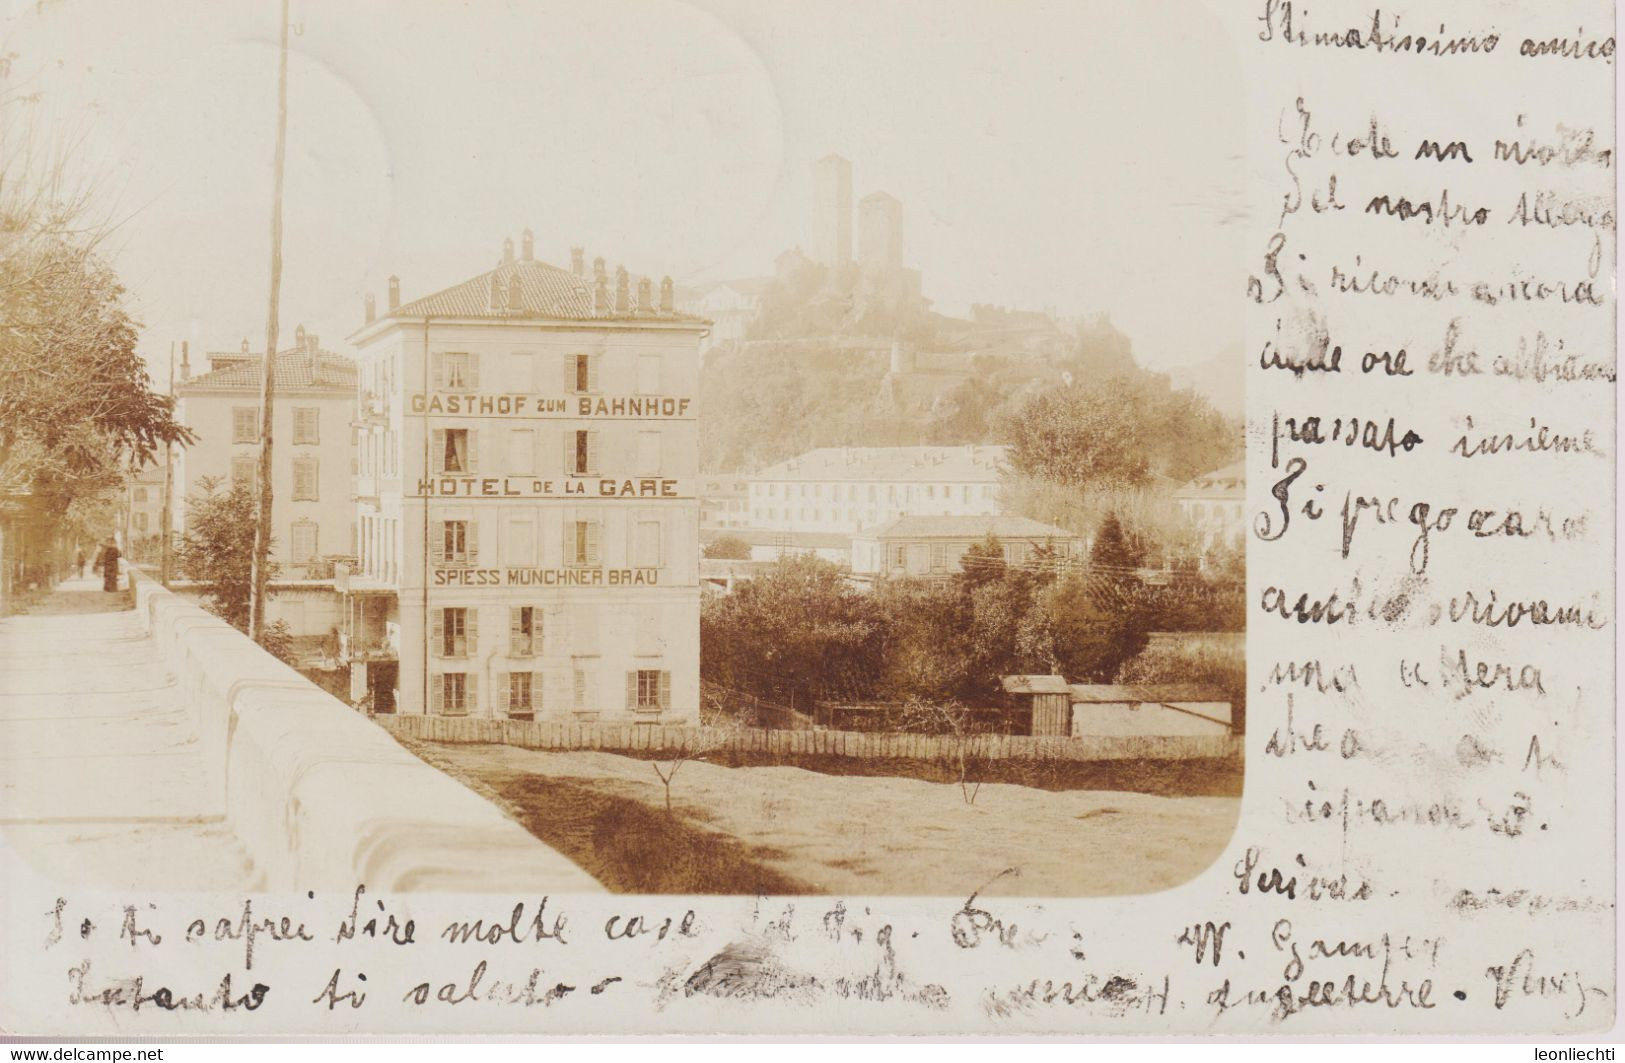 Stimatissimo amico
un ricordo
del nostro Albergo
Ti ricordi ancora
delle ore che abbiamo
passato insieme
Ti prego caro
amico scrivami
una lettera
che ti
risponderò.
GASTHOF ZUM BAHNHOF
HÔTEL DE LA GARE
SPIESS MÜNCHNER BRÄU
Scrivi
Io ti saprei dire molte cose del Sig.
Intanto ti saluto - amico
W. Gamper
H. Angleterre - Vevey
leonliechti